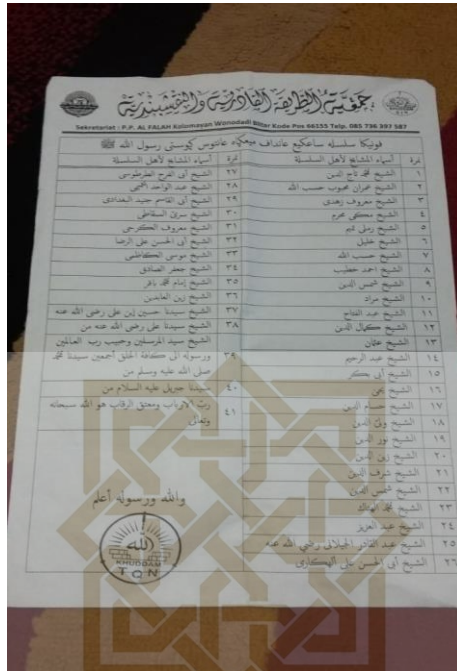 جمعية الطريقة القادرية والنقشبندية
Sekretariat : P.P. AL FALAH Kolomayan Wonodadi Blitar Kode Pos 66155 Telp. 085 736 397 587
نمرة أسماء المشايخ لأهل السلسلة
١ الشيخ محمد تاج الدين
٢ الشيخ عمران محبوب حسب الله
٣ الشيخ معروف زهدى
٤ الشيخ مكى محرم
٥ الشيخ رملى تميم
٦ الشيخ خليل
٧ الشيخ حسب الله
٨ الشيخ احمد خطيب
٩ الشيخ شمس الدين
١٠ الشيخ مراد
١١ الشيخ عبد الفتاح
١٢ الشيخ كمال الدين
١٣ الشيخ عثمان
١٤ الشيخ عبد الرحيم
١٥ الشيخ أبى بكر
١٦ الشيخ يحيى
١٧ الشيخ حسام الدين
١٨ الشيخ ولى الدين
١٩ الشيخ نور الدين
٢٠ الشيخ زين الدين
٢١ الشيخ شرف الدين
٢٢ الشيخ شمس الدين
٢٣ الشيخ محمد الهتاك
٢٤ الشيخ عبد العزيز
٢٥ الشيخ عبد القادر الجيلانى رضي الله عنه
٢٦ الشيخ أبى الحسن على الهكارى
نمرة أسماء المشايخ لأهل السلسلة
٢٧ الشيخ أبى الفرح الطرطوسى
٢٨ الشيخ عبد الواحد التميمى
٢٩ الشيخ أبى القاسم جنيد البغدادى
٣٠ الشيخ سرى السقاطى
٣١ الشيخ معروف الكرخى
٣٢ الشيخ أبى الحسن على الرضا
٣٣ الشيخ موسى الكاظمى
٣٤ الشيخ جعفر الصادق
٣٥ الشيخ إمام محمد باقر
٣٦ الشيخ زين العابدين
٣٧ الشيخ سيدنا حسين بن على رضى الله عنه
٣٨ الشيخ سيدنا على رضى الله عنه من
٣٩ الشيخ سيد المرسلين وحبيب رب العالمين
ورسوله الى كافة الخلق أجمعين سيدنا محمد
صلى الله عليه وسلم من
٤٠ سيدنا جبريل عليه السلام من
٤١ ربّ الارباب ومعتق الرقاب هو الله سبحانه
وتعالى
والله ورسوله أعلم
الله
KHUDDAM
TQN